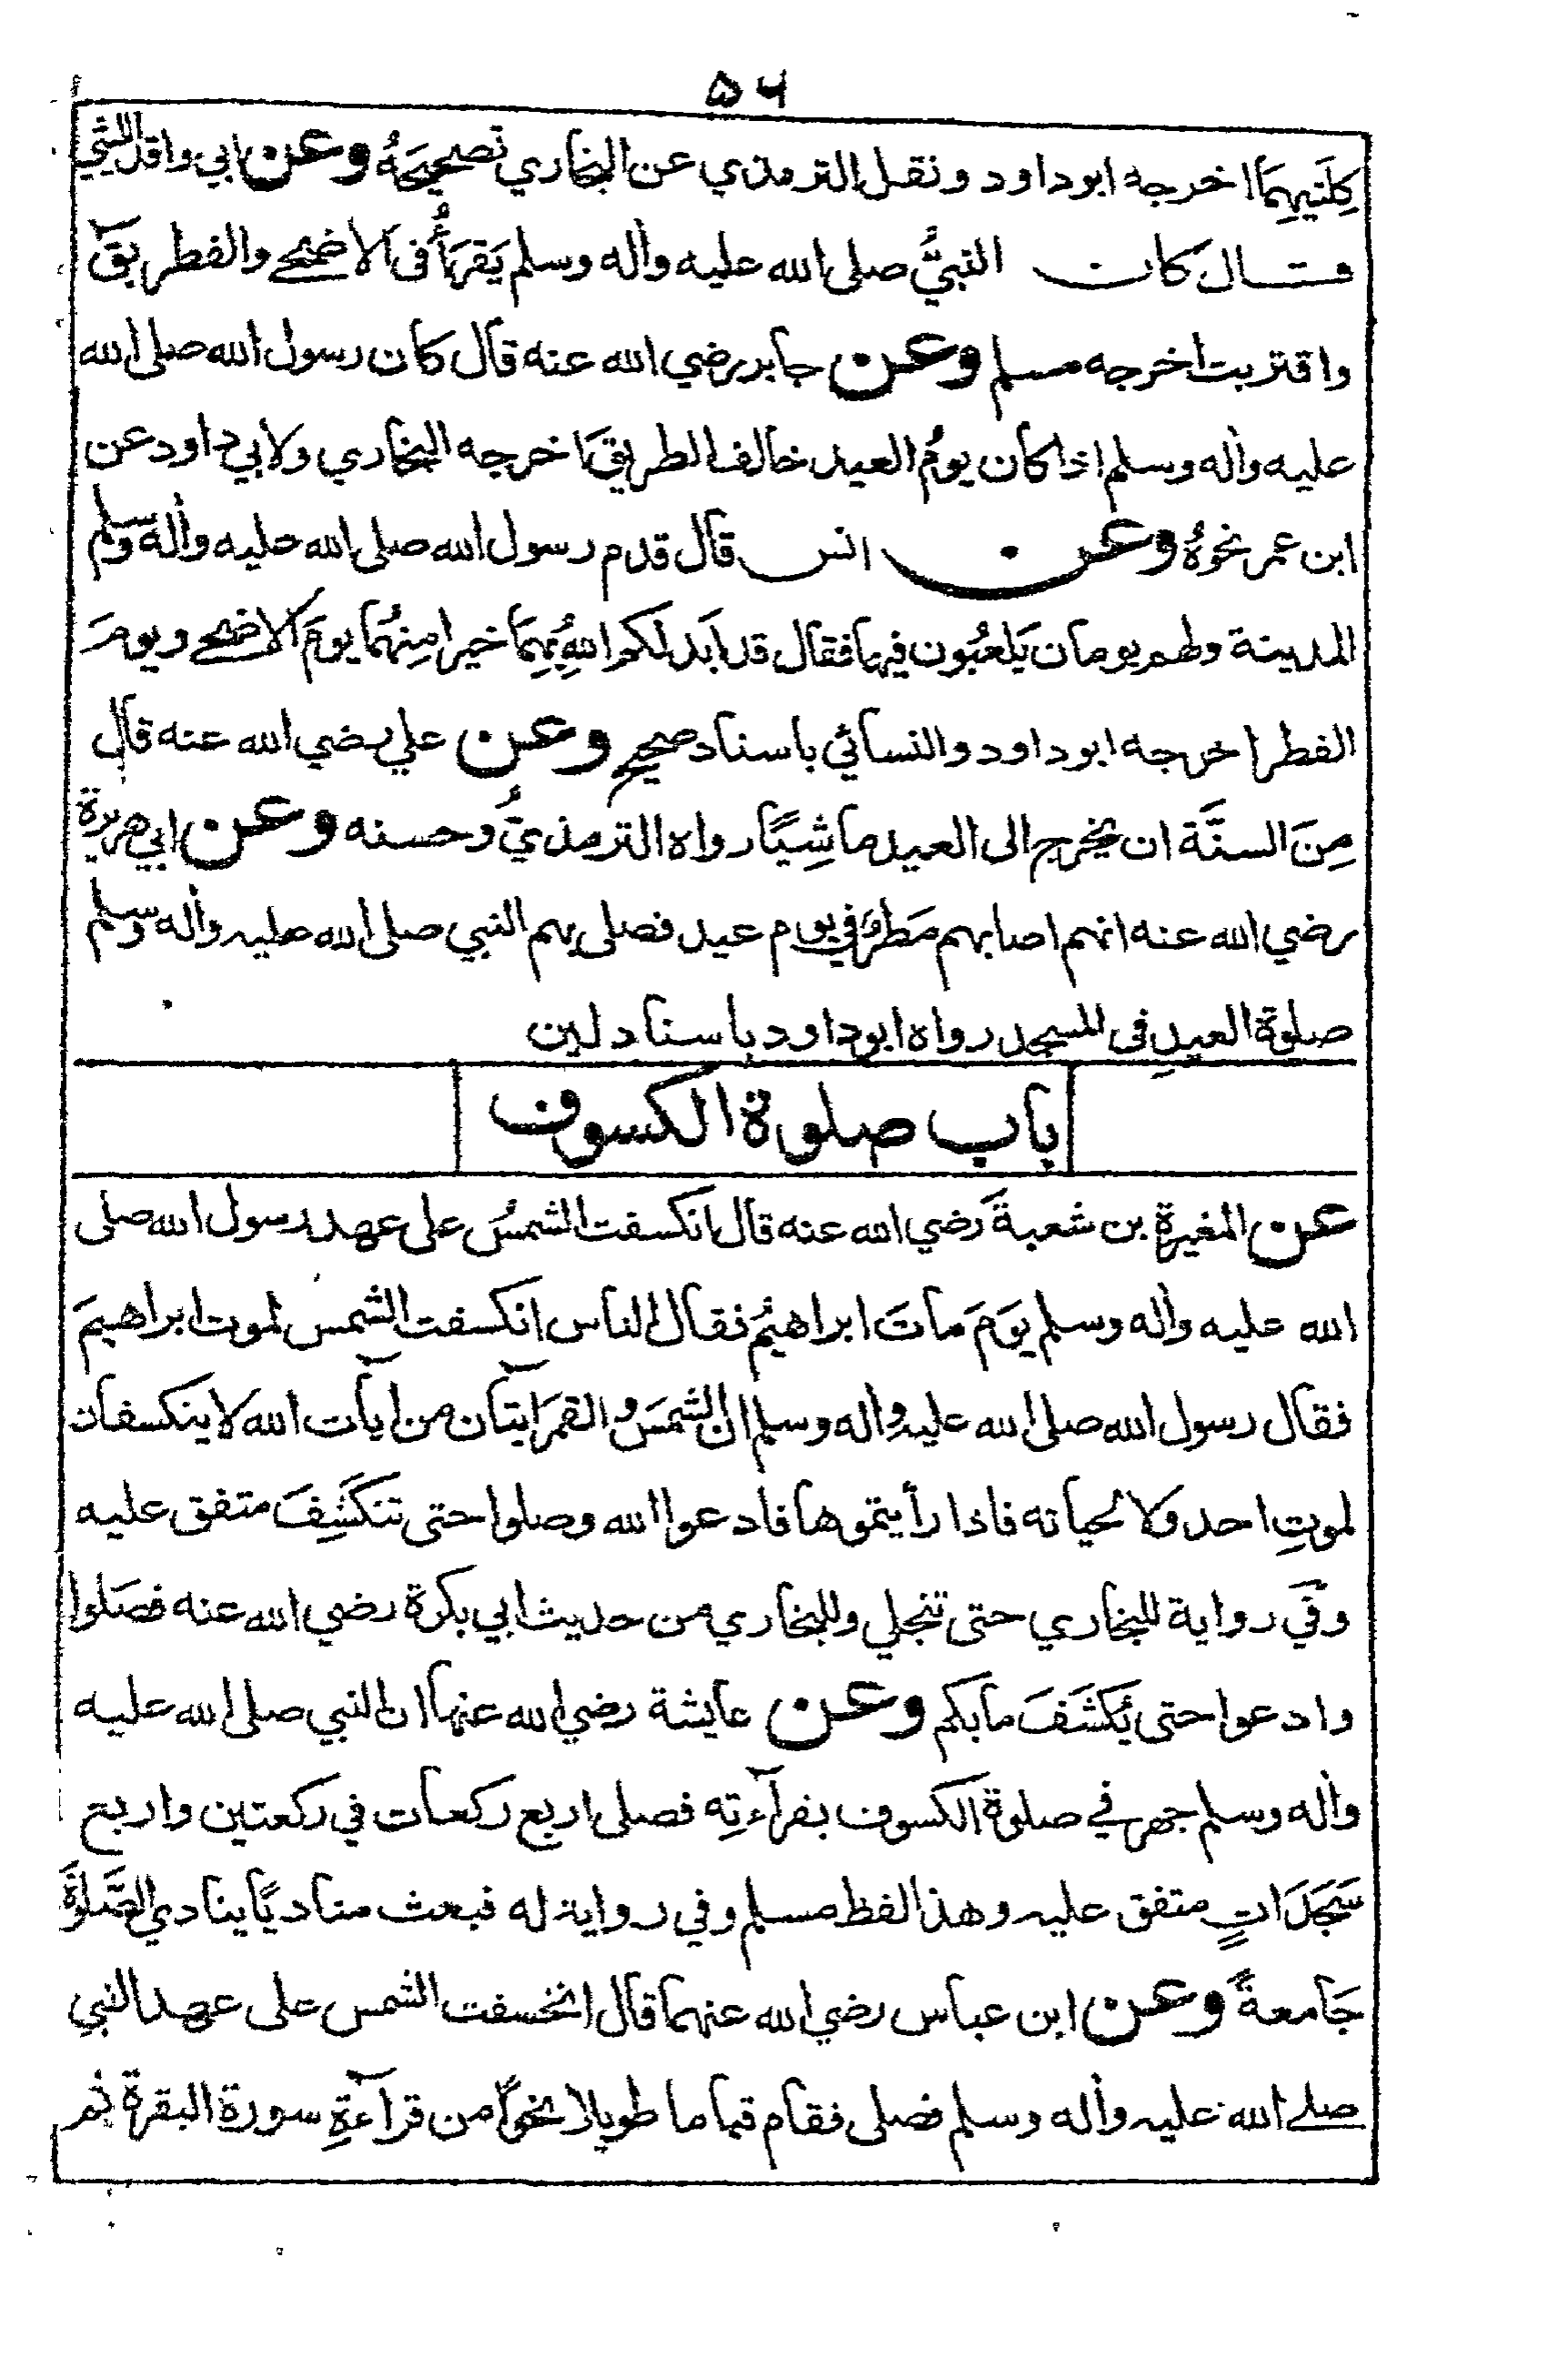 ۵۶
كِلتَيهِمَا اخرجه ابوداود ونقل الترمذي عن البخاري تصحيحَهُ وعن ابي واقد الليثي
قال كان النبيُّ صلى الله عليه واٰله وسلم يَقرَأُ في الاضحى والفطر بقٓ
واقتربت اخرجه مسلم وعن جابر رضي الله عنه قال كان رسول الله صلى الله
عليه واٰله وسلم اذا كان يومُ العيد خالف الطريقَ اخرجه البخاري ولابي داود عن
ابن عمر نحوهُ وعن انس قال قدم رسول الله صلى الله عليه واٰله وسلم
المدينة ولهم يومان يَلعَبُون فيهما فقال قد ابدَلكم اللهُ بِهِمَا خيرا مِنهُمَا يومَ الاضحى ويومَ
الفطر اخرجه ابوداود والنسائي باسناد صحيح وعن علي رضي الله عنه قال
مِنَ السنَّة ان يخرج الى العيد ماشِيًا رواه الترمذيُّ وحسنه وعن ابي هريرة
رضي الله عنه انهم اصابهم مَطَرٌ في يوم عيد فصلى بهم النبي صلى الله عليه واٰله وسلم
صلوة العيدِ في المسجد رواه ابوداود باسناد لين
باب صلوة الكسوف
عن المغيرة بن شعبةَ رضي الله عنه قال انكسفت الشمسُ على عهد رسول الله صلى
الله عليه واٰله وسلم يوَمَ ماتَ ابراهيمُ فقال الناس انكسفت الشمس لموت ابراهيمَ
فقال رسول الله صلى الله عليه واٰله وسلم ان الشمسَ والقمرَ اٰيتان من اٰيات الله لا ينكسفان
لموتِ احد ولا لحياته فاذا رأيتموها فادعوا الله وصلوا حتى تنكَشِفَ متفق عليه
وفي رواية للبخاري حتى تنجلي وللبخاري من حديث ابي بكرة رضي الله عنه فصَلوا
وادعوا حتى يُكشَفَ ما بكم وعن عايشة رضي الله عنها ان النبي صلى الله عليه
واٰله وسلم جهر في صلوة الكسوف بقراٰءتِه فصلى اربع ركعات في ركعتين واربع
سَجَدَاتٍ متفق عليه وهذا لفظ مسلم وفي رواية له فبعث مناديًا ينادي الصَّلوٰةَ
جَامعةً وعن ابن عباس رضي الله عنهما قال انخسفت الشمس على عهد النبي
صلى الله عليه واٰله وسلم فصلى فقام قياما طويلا نحوًا من قراٰءةِ سورة البقرة ثم